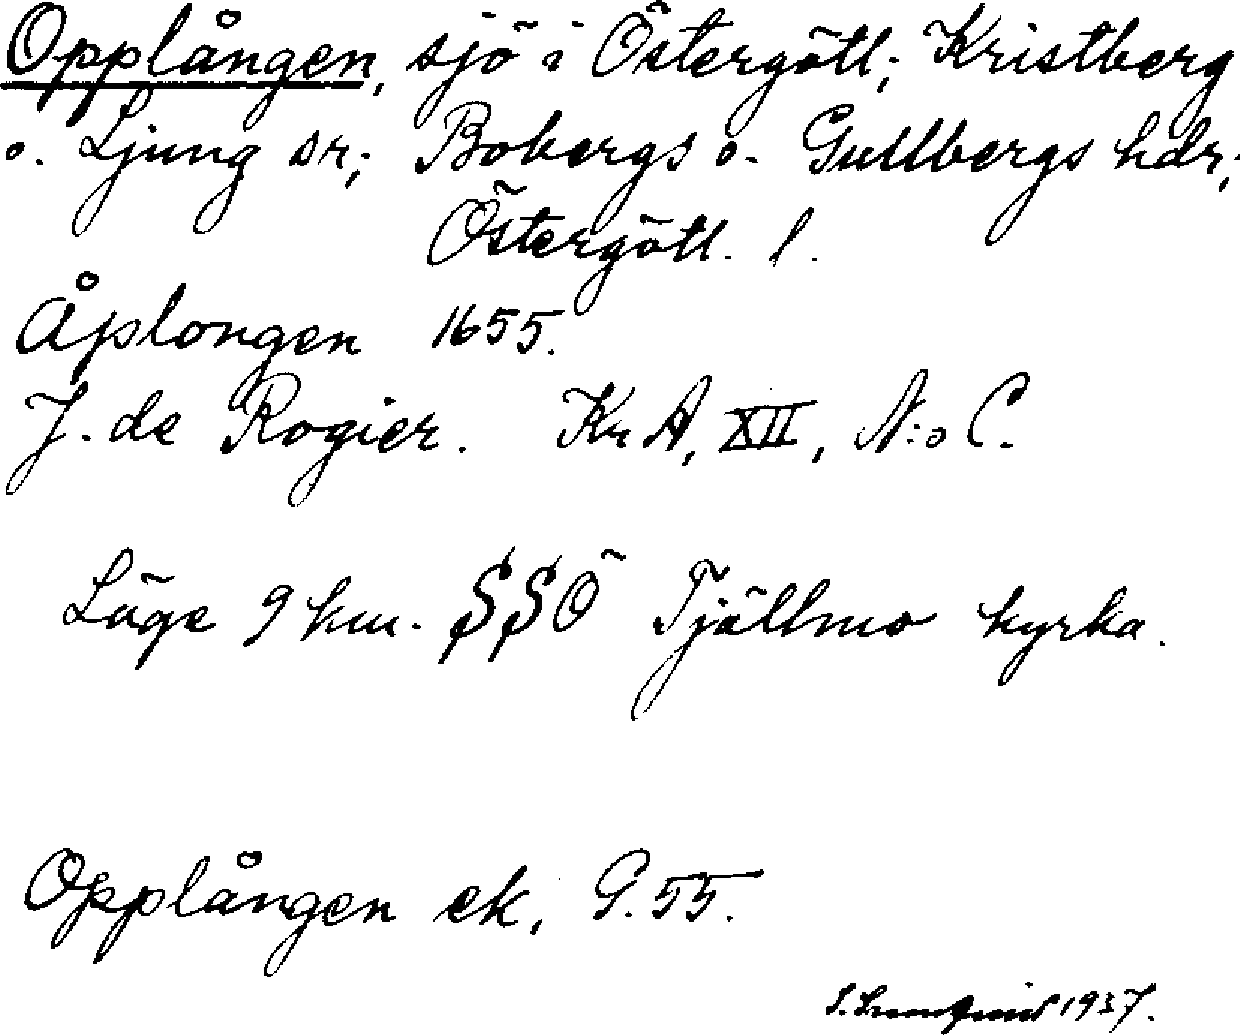 Opplången, sjö i Östergötl; Kristberg
o. Ljung sr; Bobergs o. Gullbergs hdr;
Östergötl. l.
Åplongen 1655.
J. de Rogier. KrA, XII, N:o C.
Läge 9 km. SSÖ Tjällmo kyrka.
Opplången ek, G. 55.
1937.